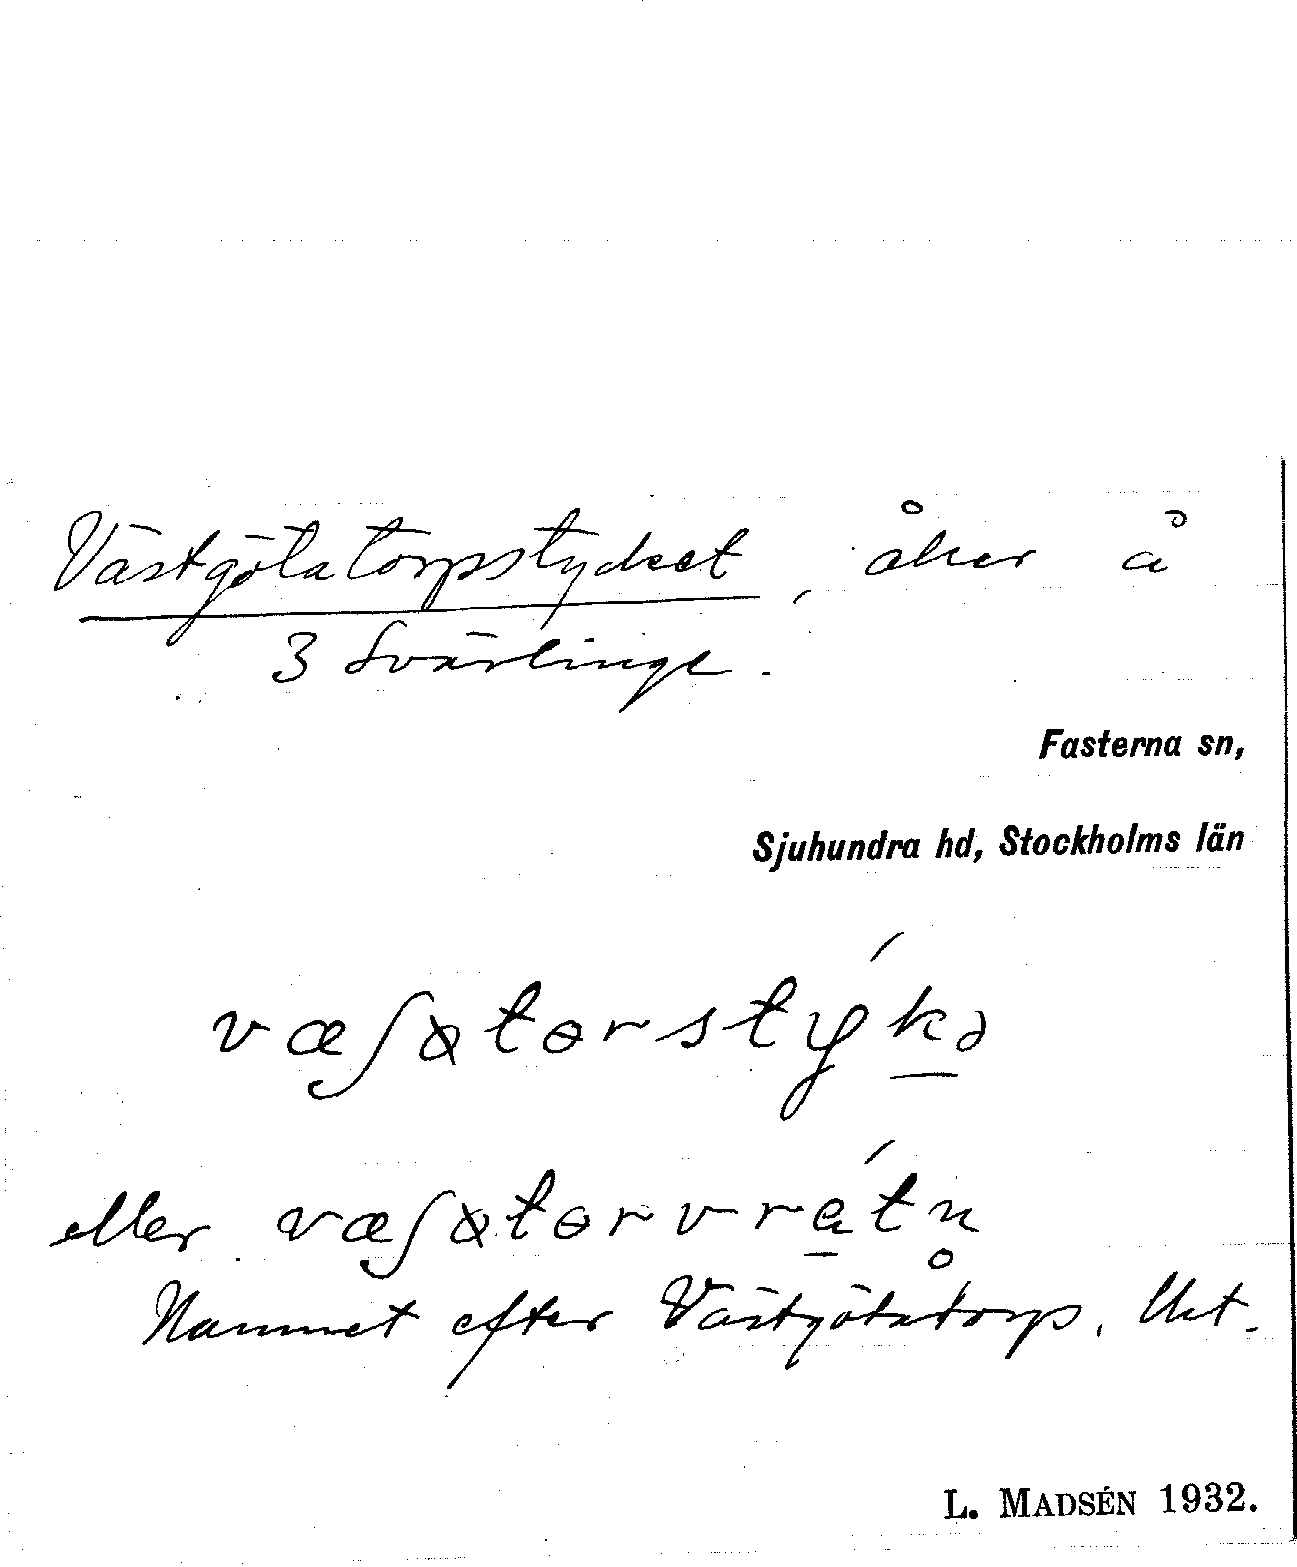 Västgötatorpstycket, åker å
3 Svärlinge.
Fasterna sn,
Sjuhundra hd, Stockholms län
væʃɵtɵrstýkə
eller væʃɵtɵrvrátn̥
Namnet efter Västgötatorp. Utt.
L. MADSÉN 1932.